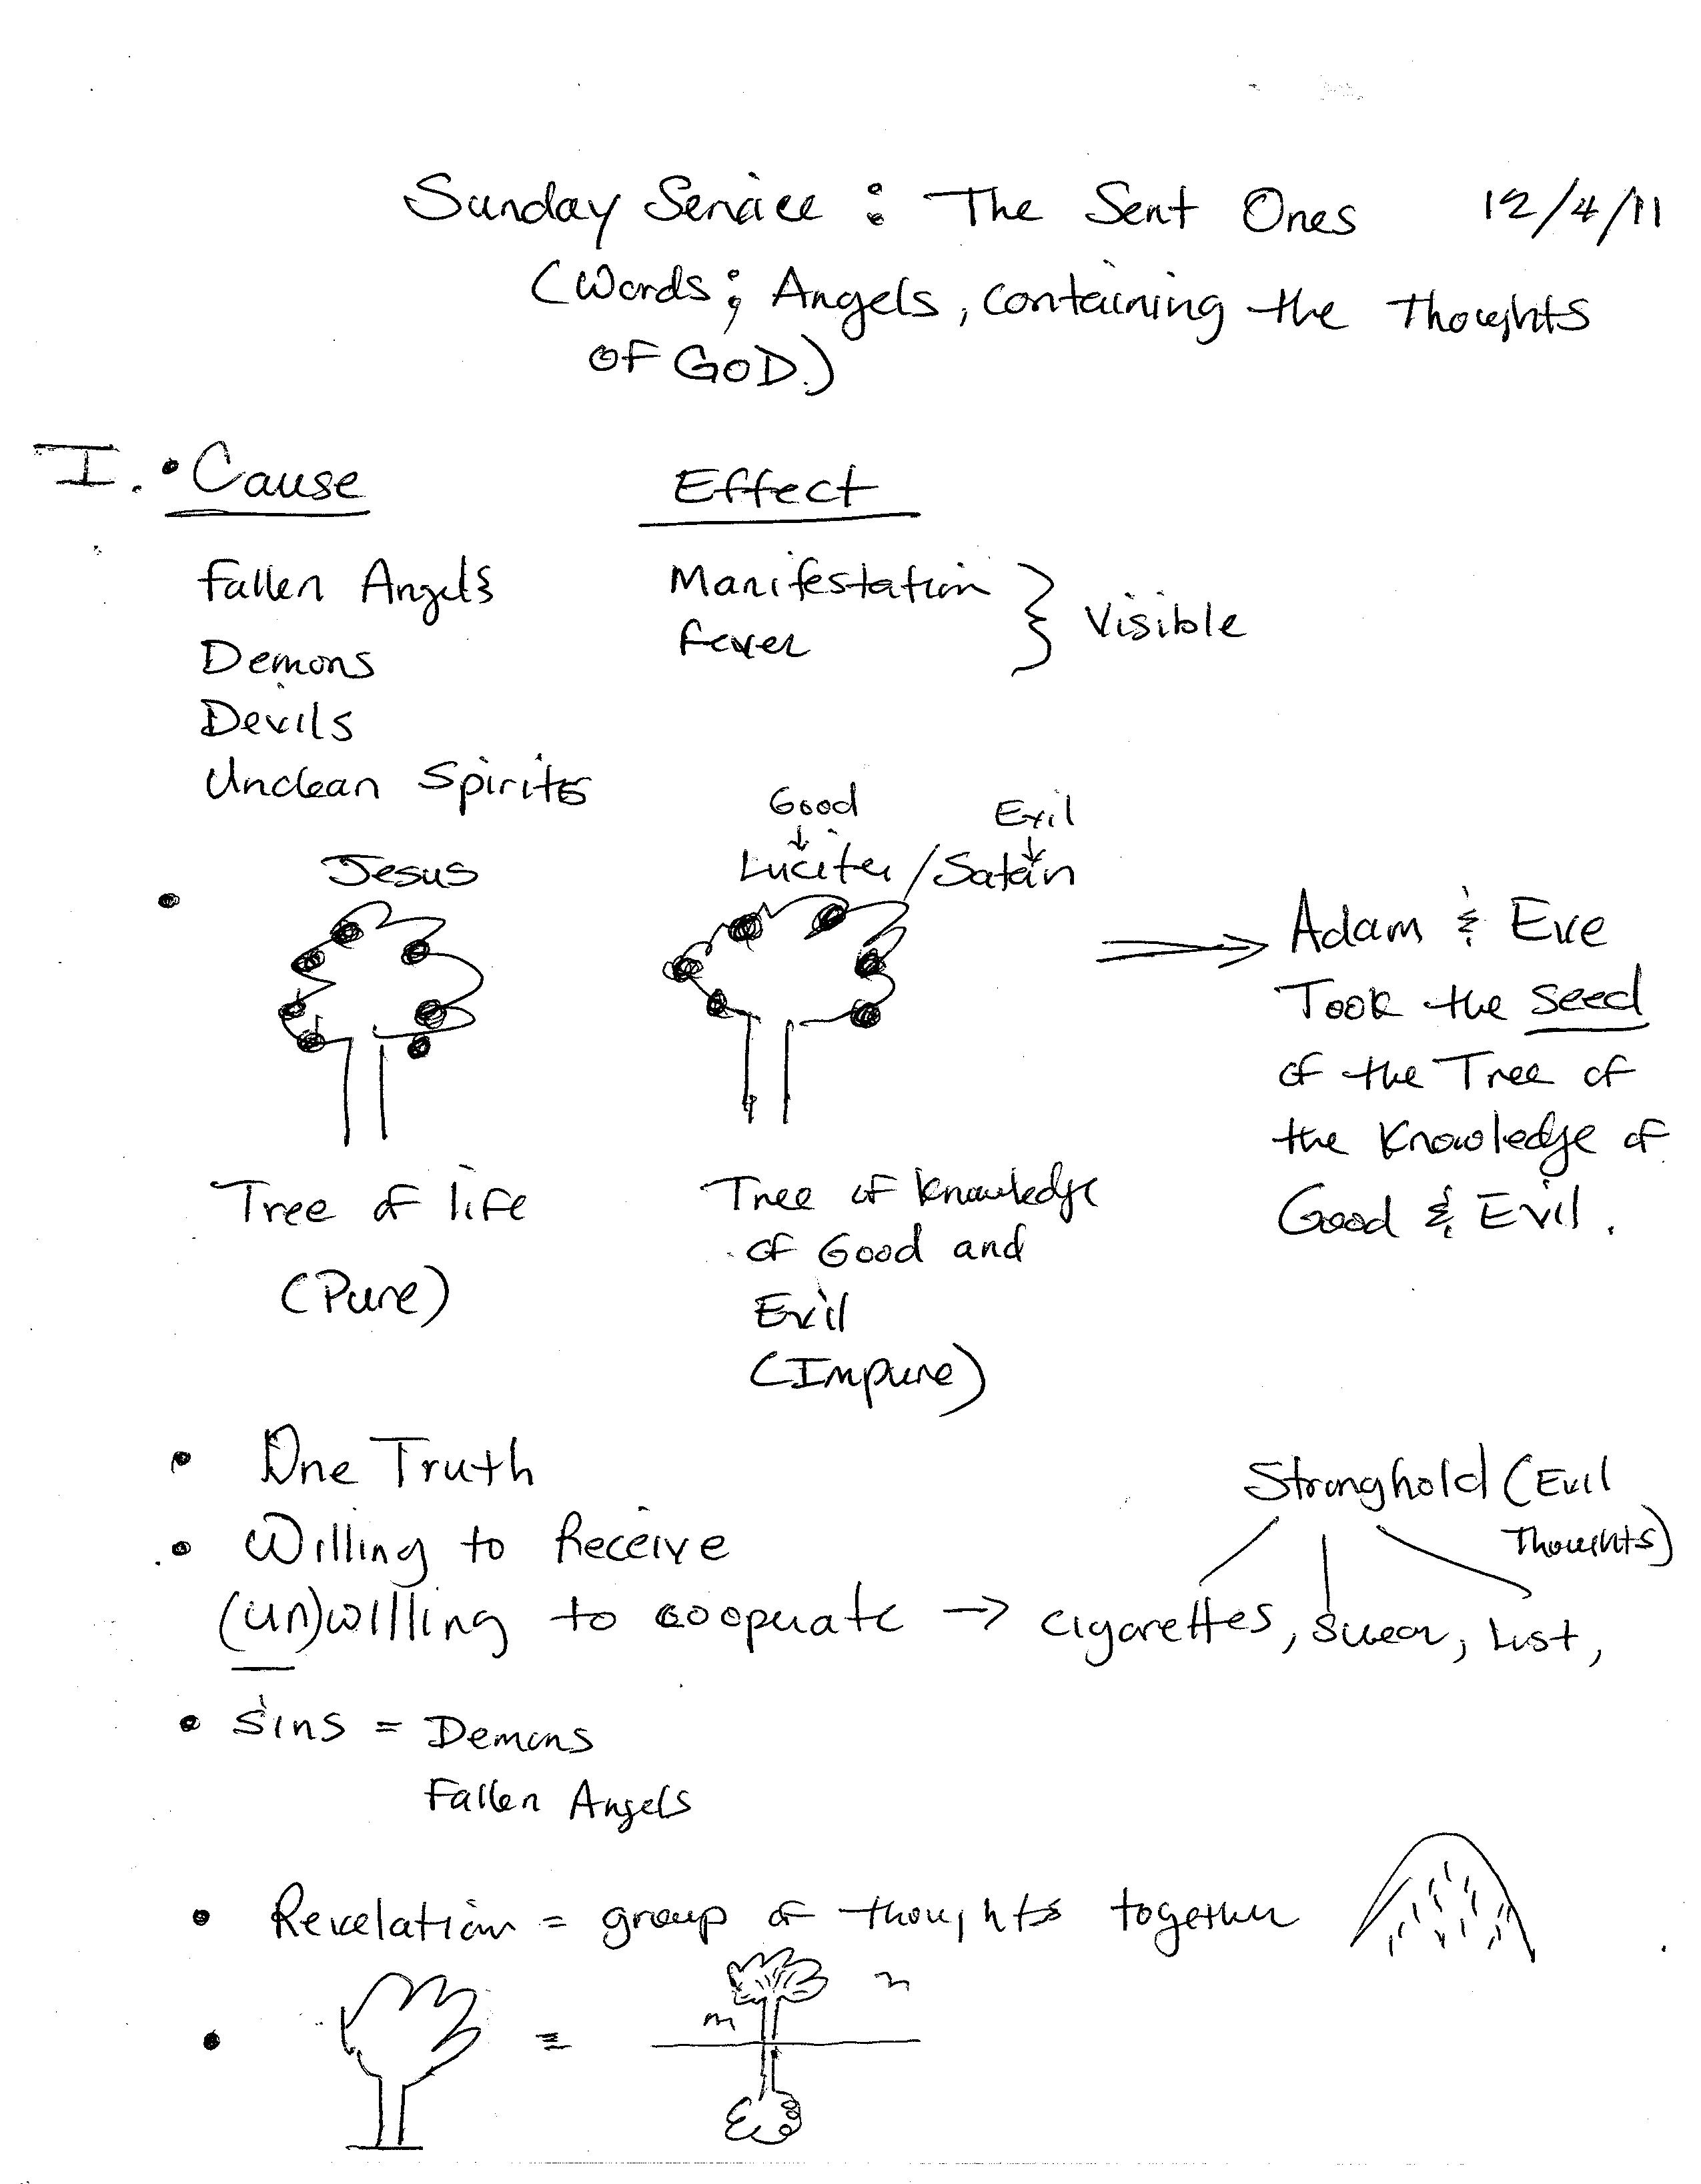 Sunday Service : The Sent Ones 12/4/11
(Words; Angels, containing the Thoughts
of GOD.)
I. • Cause Effect
Fallen Angels Manifestation } Visible
Demons Fever
Devils
Unclean Spirits
Good Evil
↓ ↓
• Jesus Lucifer/Satan
⇒ Adam & Eve
Took the seed
of the Tree of
the Knowledge of
Good & Evil.
Tree of life
(Pure)
Tree of knowledge
of Good and
Evil
(Impure)
• One Truth
• Willing to Receive
(un)willing to cooperate → cigarettes, swear, Lust,
Stronghold (Evil
Thoughts)
• Sins = Demons
Fallen Angels
• Revelation = group of thoughts together
• =